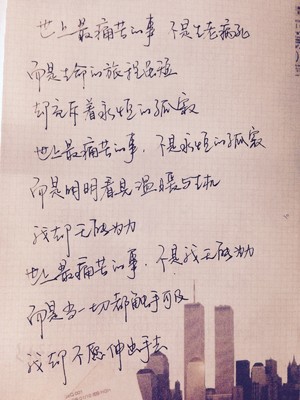 世上最痛苦的事 不是生老病死
而是生命的旅程虽短
却充斥着永恒的孤寂
世上最痛苦的事，不是永恒的孤寂
而是明明看见温暖与生机
我却无能为力
世上最痛苦的事，不是我无能为力
而是当一切都触手可及
我却不愿伸出手去